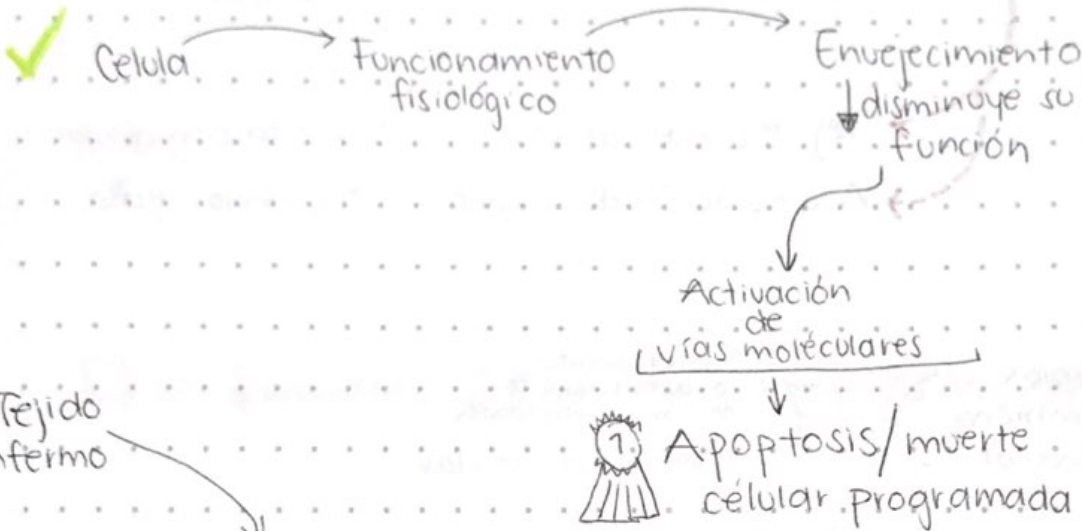 Célula
Funcionamiento
fisiológico
Envejecimiento
↓ disminuye su
función
Activación
de
vías moléculares
Tejido
nfermo
1 Apoptosis/muerte
célular programada